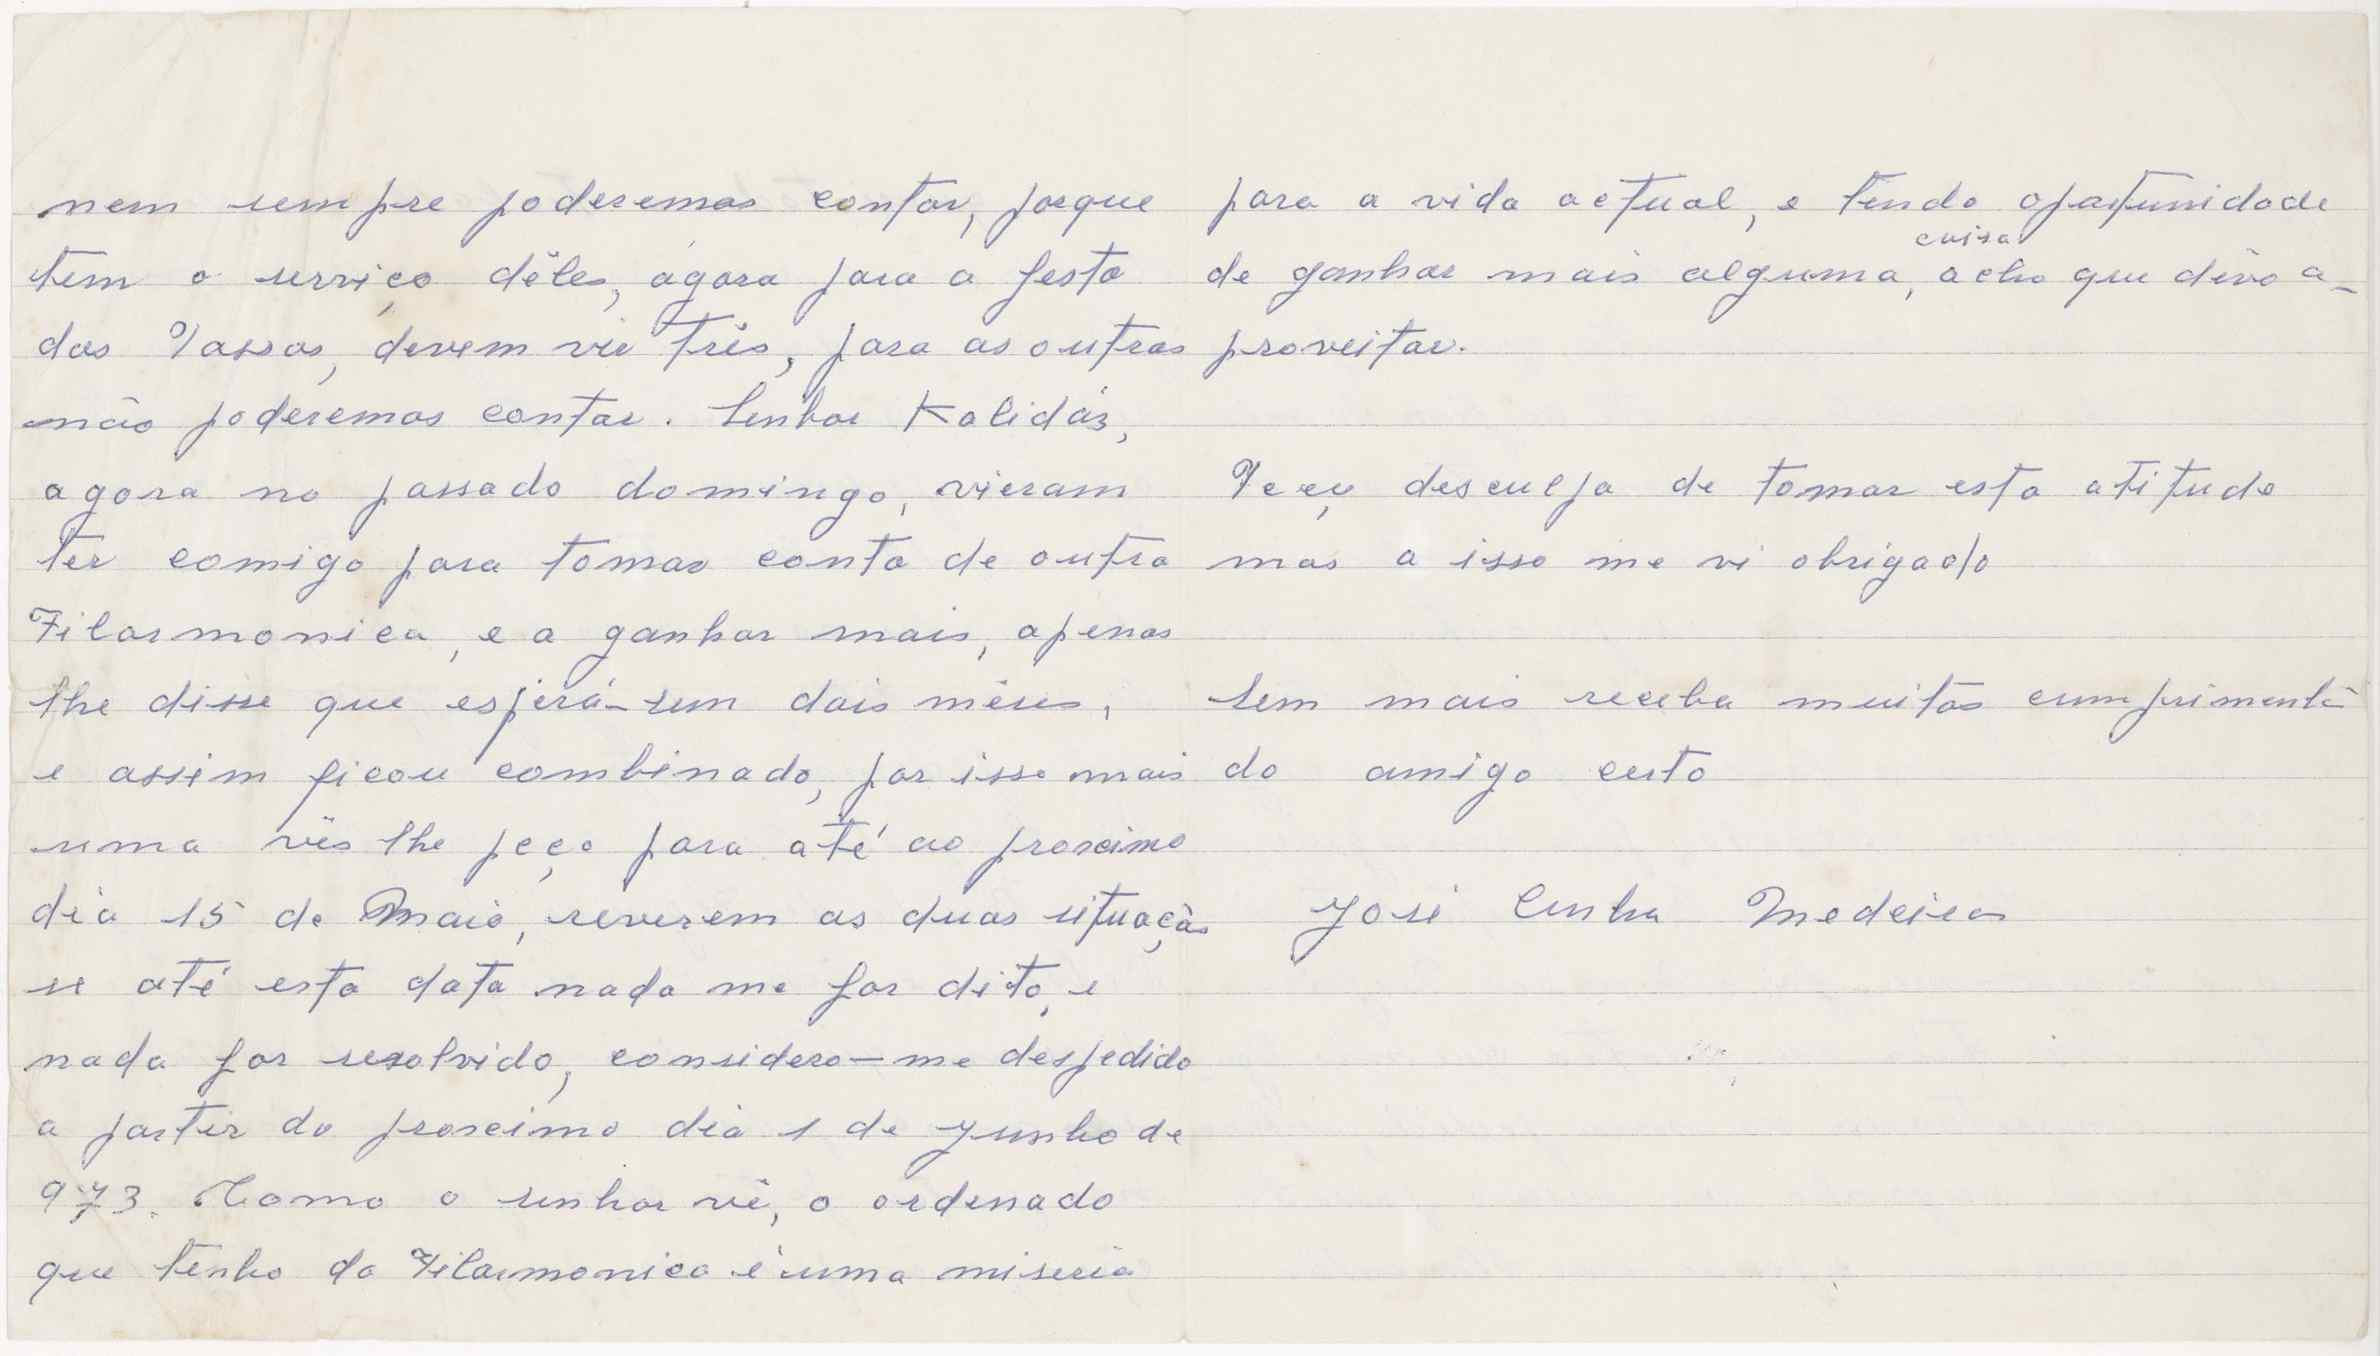 nem sempre poderemos contar, porque
tem o serviço dêles, ágora para a festa
dos Passos, devem vir três, para as outras
não poderemos contar. Senhor Kalidás,
agora no passado domingo, vieram
ter comigo para tomar conta de outra
Filarmonica, e a ganhar mais, apenas
lhe disse que esperá-sem dois mêses,
e assim ficou combinado, por isso mais
uma vês lhe peço para até ao proximo
dia 15 de Maio, reverem as duas situaçãs
se até esta data nada me for dito, e
nada for resolvido, considero-me despedido
a partir do proximo dia 1 de Junho de
973. Como o senhor vê, o ordenado
que tenho da Filarmonica é uma miseria
para a vida actual, e tendo oportunidade
coisa
de ganhar mais alguma, acho que dêvo a-
proveitar.
Peço desculpa de tomar esta atitude
mas a isso me vi obrigado
Sem mais receba muitos cumprimentos
do amigo certo
José Cunha Medeiros